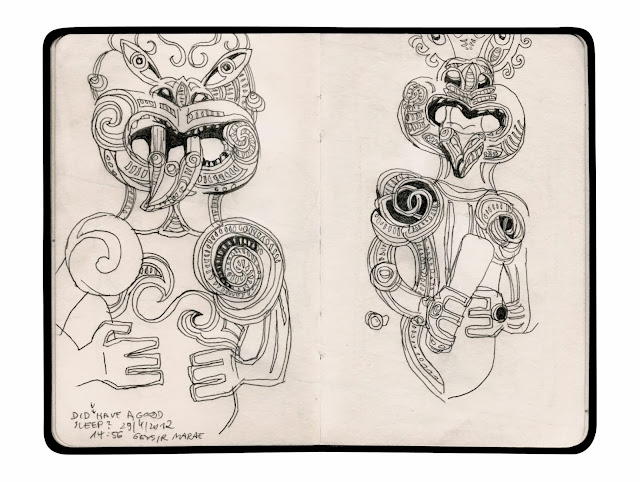 DID U HAVE A GOOD
SLEEP? 29/4/2012
14:56 GEYSIR MARAE